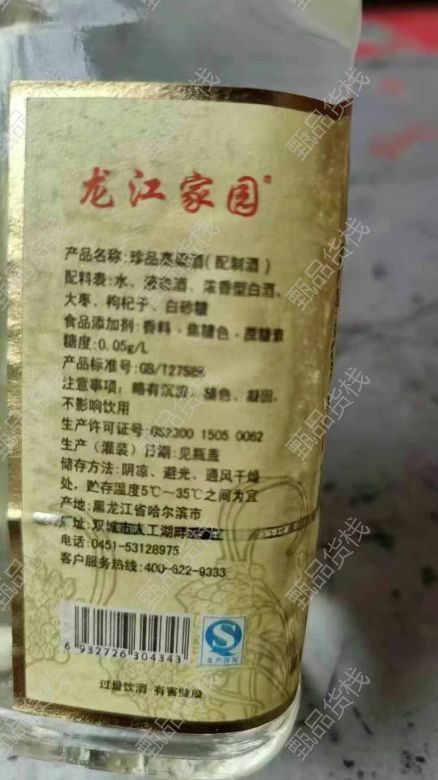 龙江家园
产品名称: 珍品枣酒(配制酒)
配料表: 水、液态酒、浓香型白酒、
大枣、枸杞子、白砂糖
食品添加剂: 香料·焦糖色·蔗糖素
糖度: 0.05g/L
产品标准号: GB/T27588
注意事项: 略有沉淀、褪色、凝固、
不影响饮用
生产许可证号: QS2300 1505 0062
生产(灌装)日期: 见瓶盖
储存方法: 阴凉、避光、通风干燥
处, 贮存温度5℃~35℃之间为宜
产地: 黑龙江省哈尔滨市
双城市人工湖畔
电话: 0451-53128975
客户服务热线: 400-622-9333
6 932726 304343
生产许可
过量饮酒 有害健康
甄品货栈